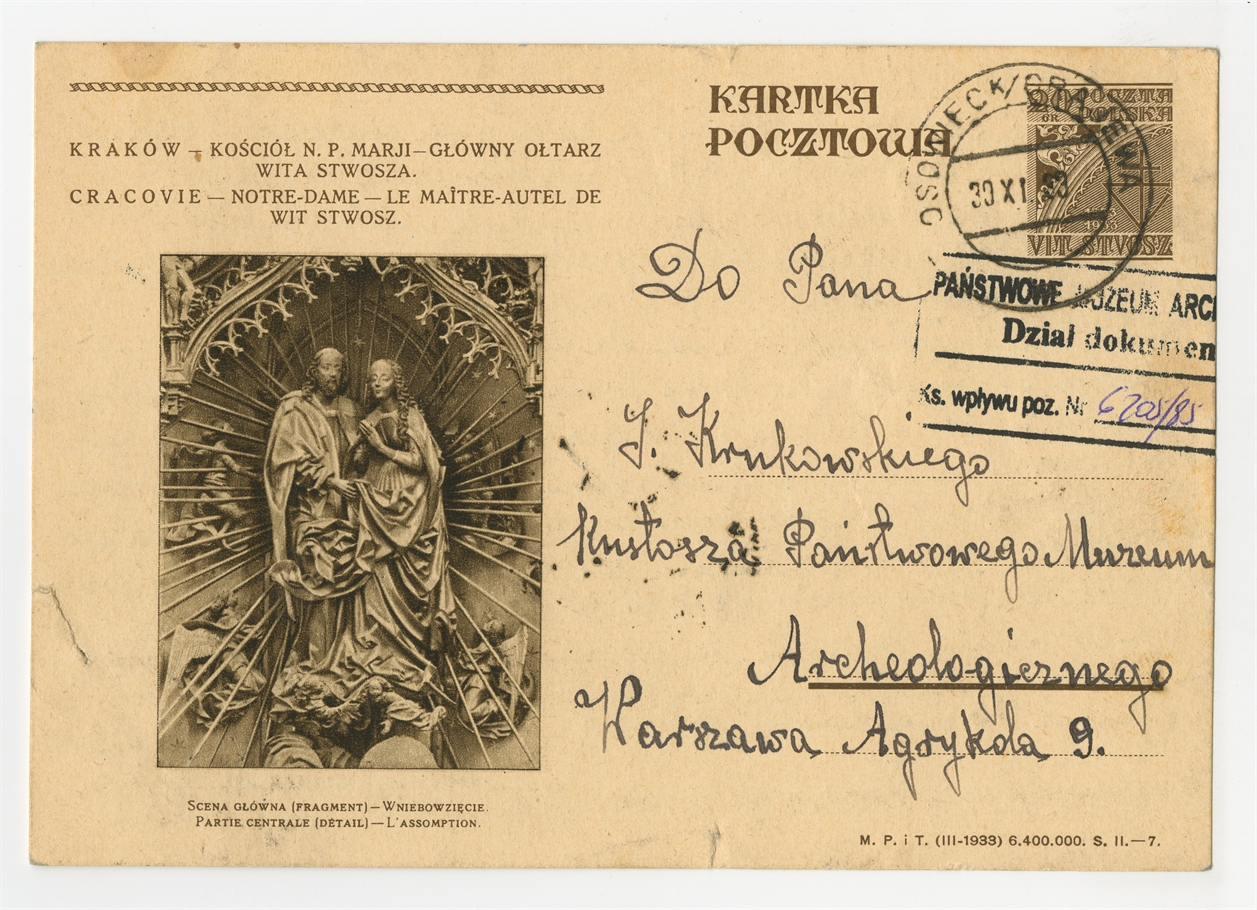 KRAKÓW – KOŚCIÓŁ N. P. MARJI – GŁÓWNY OŁTARZ
WITA STWOSZA.
CRACOVIE – NOTRE-DAME – LE MAÎTRE-AUTEL DE
WIT STWOSZ.
SCENA GŁÓWNA (FRAGMENT) – WNIEBOWZIĘCIE.
PARTIE CENTRALE (DÉTAIL) – L'ASSOMPTION.
KARTKA
POCZTOWA
20 POCZTA
GR POLSKA
1933
VIT STVOSZ
OSOWIECK/GRAJEWA
30 XI
PAŃSTWOWE MUZEUM ARCH
Dział dokumen
Ks. wpływu poz. Nr 6205/85
Do Pana
J. Krukowskiego
Kustosza Państwowego Muzeum
Archeologicznego
Warszawa Agrykola 9.
M. P. i T. (III-1933) 6.400.000. S. II.—7.